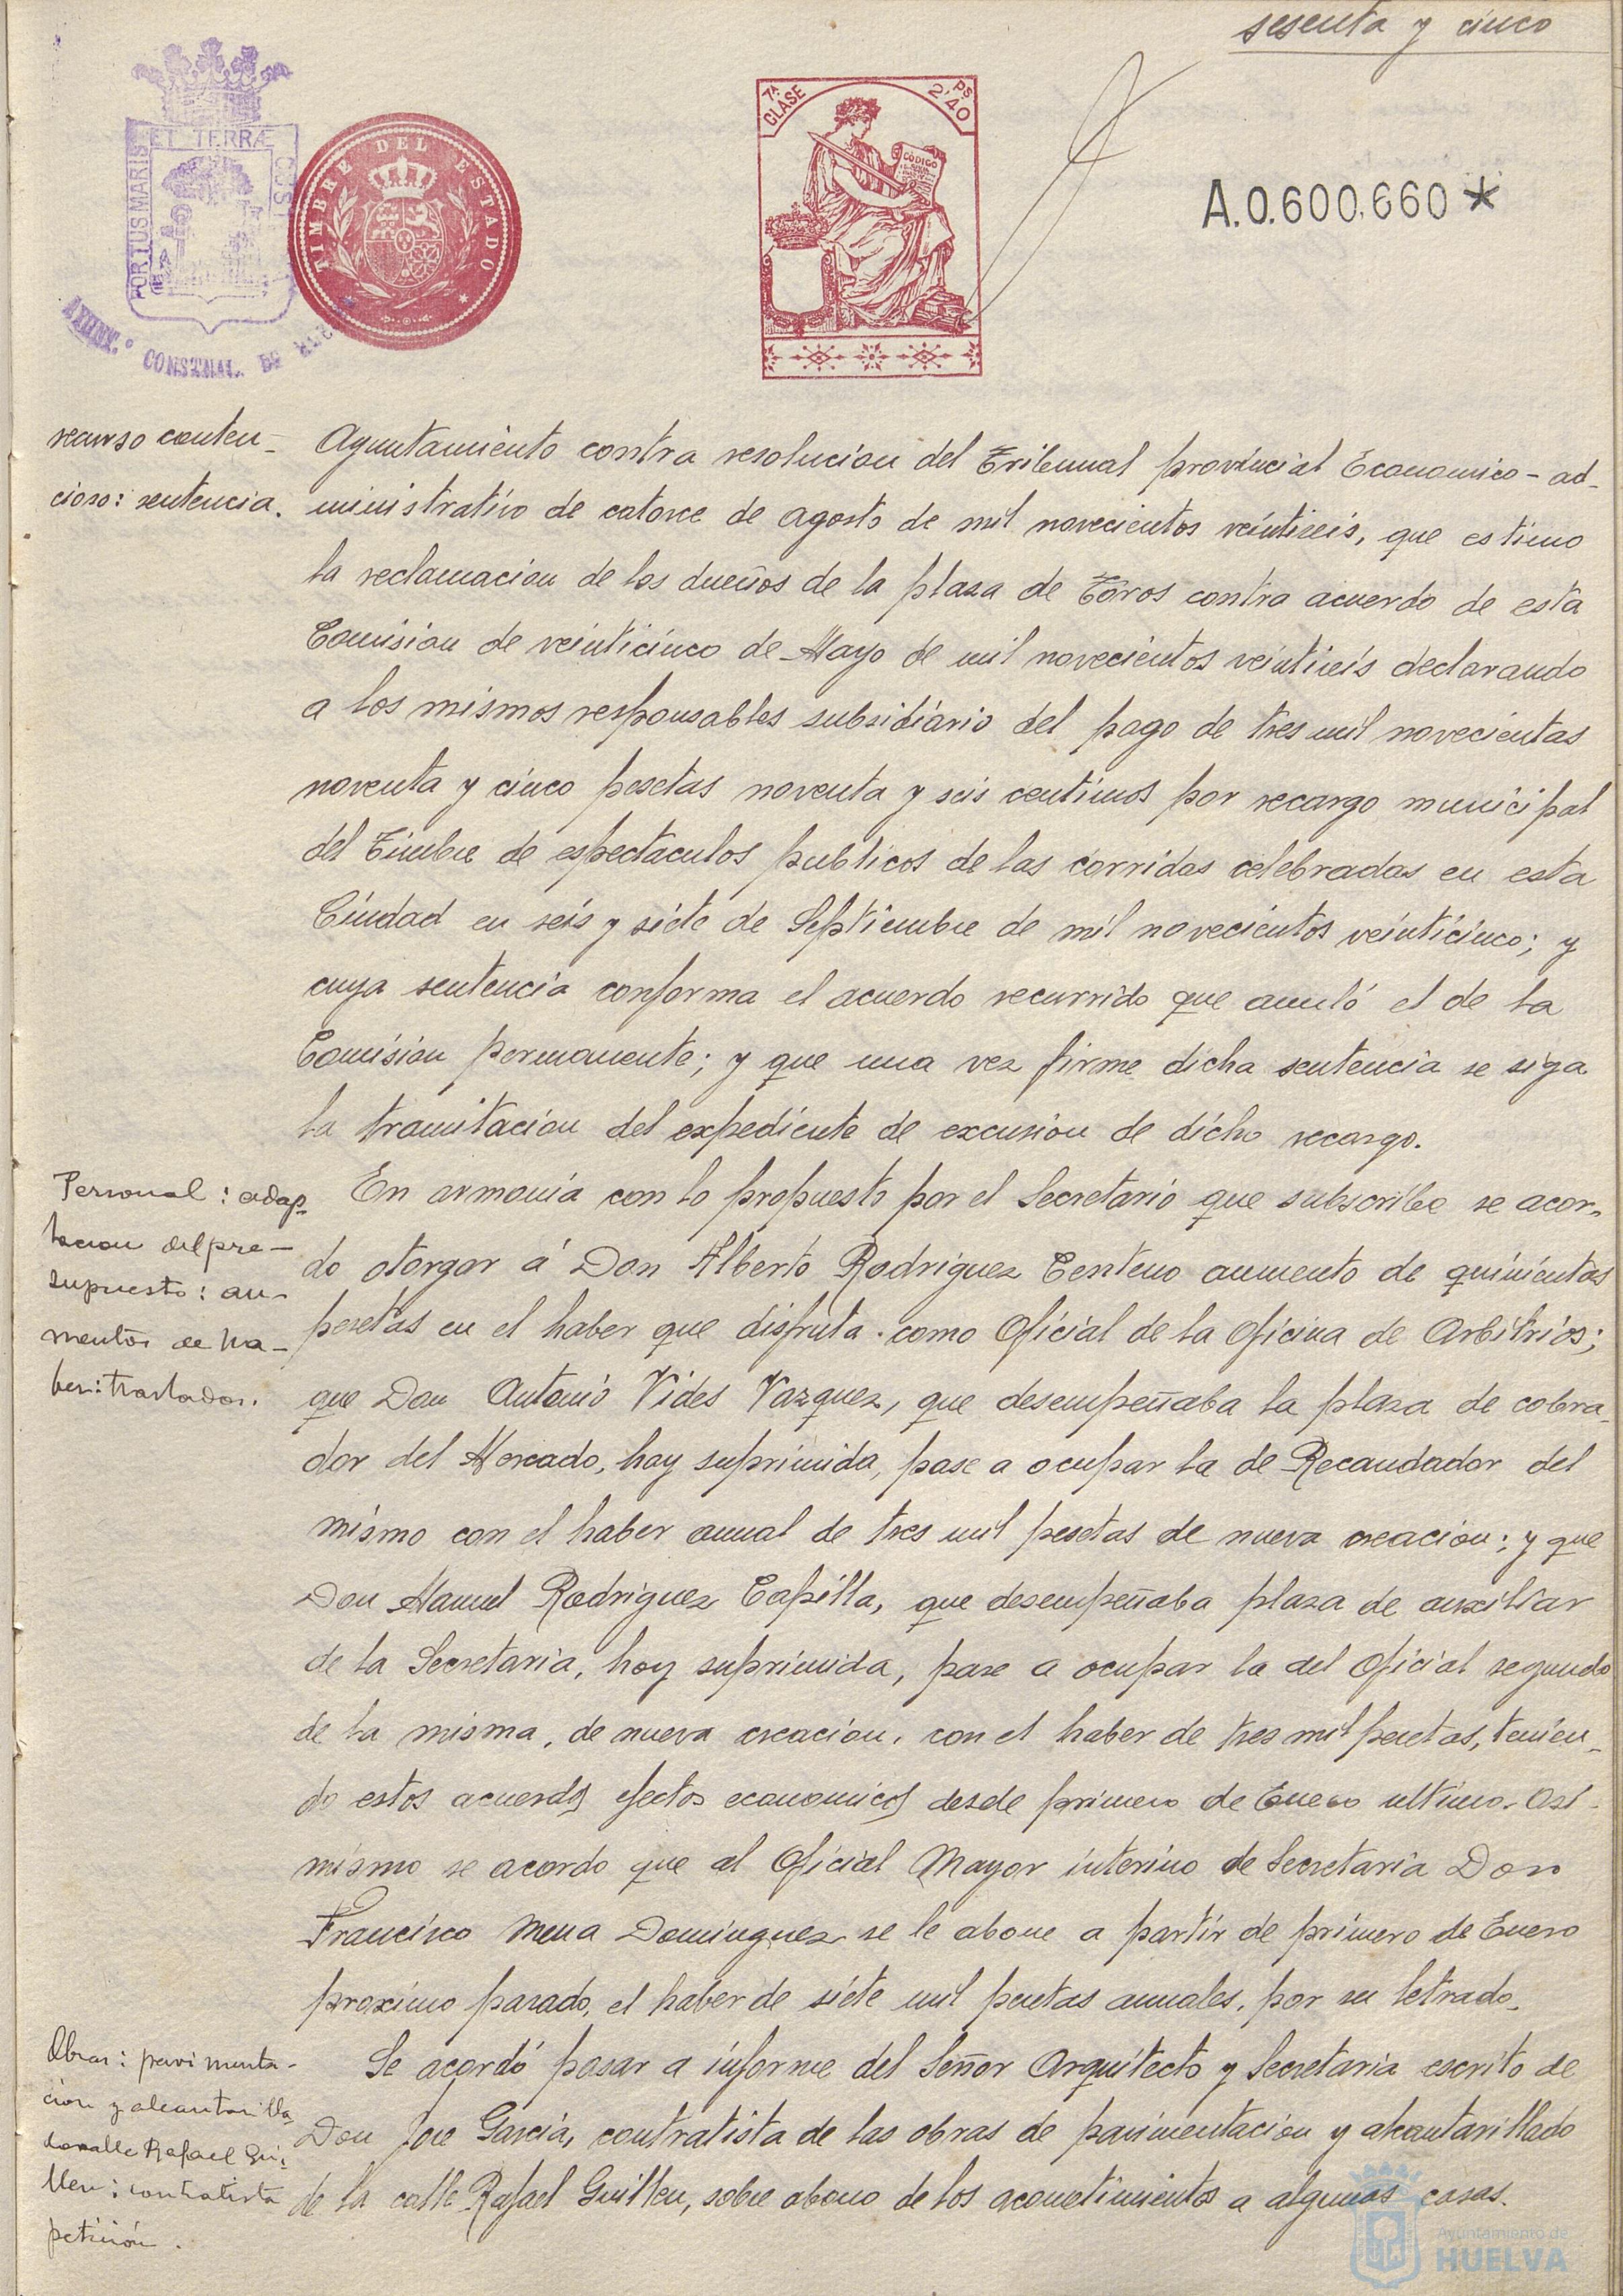 sesenta y cinco
PORTUS MARIS
ET TERRÆ
CUS
AYUNT.º CONSTNAL. DE
TIMBRE DEL ESTADO
7ª CLASE
Ps 2'40
CÓDIGO
A.0.600.660*
recurso conten-
cioso: sentencia.
Ayuntamiento contra resolucion del Tribunal provincial Economico-ad-
ministrativo de catorce de agosto de mil novecientos veintiseis, que estimo
la reclamacion de los dueños de la plaza de Toros contra acuerdo de esta
Comision de veinticinco de Mayo de mil novecientos veintiseis declarando
a los mismos responsables subsidiario del pago de tres mil novecientas
noventa y cinco pesetas noventa y seis centimos por recargo municipal
del Timbre de espectaculos publicos de las corridas celebradas en esta
Ciudad en seis y siete de Septiembre de mil novecientos veinticinco; y
cuya sentencia conforma el acuerdo recurrido que anuló el de la
Comision permanente; y que una vez firme dicha sentencia se siga
la tramitacion del expediente de excusion de dicho recargo.
Personal: adap-
tacion del pre-
supuesto: au-
mentos de ha-
ber: traslados.
En armonia con lo propuesto por el Secretario que subscribe se acor-
do otorgar á Don Alberto Rodriguez Centeno aumento de quinientas
pesetas en el haber que disfruta como Oficial de la Oficina de Arbitrios;
que Don Antonio Vides Vazquez, que desempeñaba la plaza de cobra-
dor del Mercado, hoy suprimida, pase a ocupar la de Recaudador del
mismo con el haber anual de tres mil pesetas de nueva creacion; y que
Don Manuel Rodriguez Capilla, que desempeñaba plaza de auxiliar
de la Secretaria, hoy suprimida, pase a ocupar la del Oficial segundo
de la misma, de nueva creacion, con el haber de tres mil pesetas, tenien-
do estos acuerdos efectos economicos desde primero de Enero ultimo. Asi-
mismo se acordo que al Oficial Mayor interino de Secretaria Don
Francisco Mena Dominguez se le abone a partir de primero de Enero
proximo pasado, el haber de siete mil pesetas anuales, por ser letrado.
Obras: pavimenta-
cion y alcantarilla-
do calle Rafael Gui-
llen: contratista
petición.
Se acordó pasar a informe del Señor Arquitecto y Secretaria escrito de
Don Jose Garcia, contratista de las obras de pavimentacion y alcantarillado
de la calle Rafael Guillen, sobre abono de los acometimientos a algunas casas.
Ayuntamiento de
HUELVA